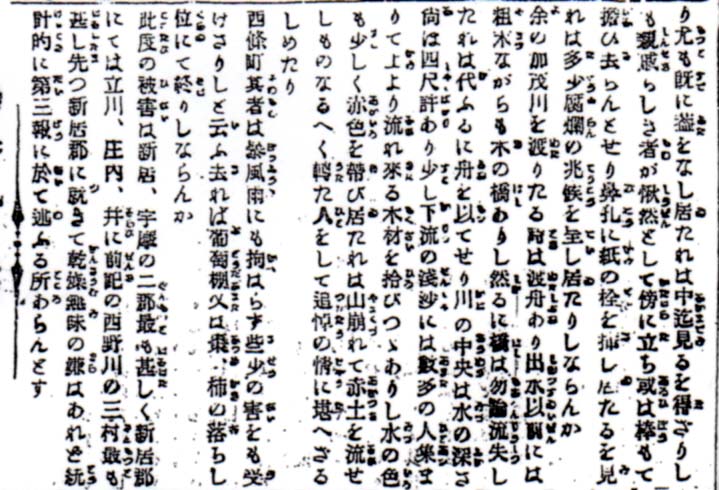 り尤も既に蓋をなし居たれは中迄見るを得ざりし
も親戚らしき者が愀然として傍に立ち或は棒もて
撥ひ去らんとせり鼻孔に紙の栓を挿し居たるを見
れは多少腐爛の兆候を呈し居たりしならんか
余の加茂川を渡りたる時は渡舟あり出水以前には
粗末ながらも木の橋ありし然るに橋は勿論流失し
たれは代ふるに舟を以てせり川の中央は水の深さ
尚は四尺許あり少し下流の浅沙には数多の人集ま
りて上より流れ來る木材を拾ひつゝありし水の色
も少しく赤色を帶び居たれは山崩れて赤土を流せ
しものなるへく轉た人をして追悼の情に堪へざる
しめたり
西條町其者は暴風雨にも拘はらす些少の害をも受
けさりしと云ふ去れば葡萄棚又は棗、柿の落ちし
位にて終りしならんか
此度の被害は新居、宇摩の二郡最も甚しく新居郡
にては立川、庄内、幷に前記の西野川の三村最も
甚し先つ新居郡に就きて乾燥無味の嫌はあれと統
計的に第三報に於て述ふる所あらんとす